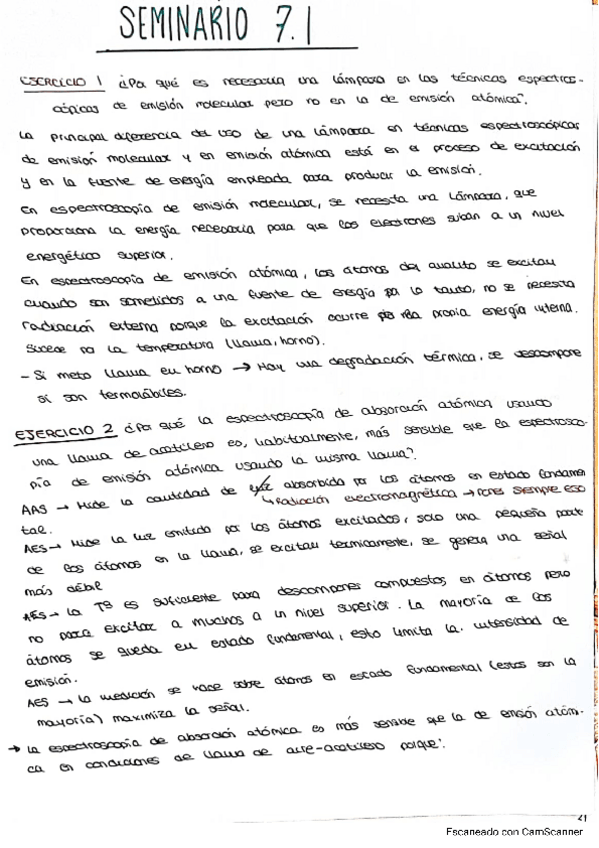 SEMINARIO 7.1
EJERCICIO 1 ¿Por qué es necesaria una lámpara en las técnicas espectros-
cópicas de emisión molecular pero no en la de emisión atómica?.
La principal diferencia del uso de una lámpara en técnicas espectroscópicas
de emisión molecular y en emisión atómica está en el proceso de excitación
y en la fuente de energía empleada para producir la emisión.
En espectroscopía de emisión molecular, se necesita una lámpara, que
proporciona la energía necesaria para que los electrones suban a un nivel
energético superior.
En espectroscopía de emisión atómica, los átomos del analito se excitan
cuando son sometidos a una fuente de energía por lo tanto, no se necesita
radiación externa porque la excitación ocurre por la propia energía interna.
Sucede por la temperatura (llama, horno).
- Si meto llama en horno → Hay una degradación térmica, se descompone
si son termolábiles.
EJERCICIO 2 ¿Por qué la espectroscopía de absorción atómica usando
una llama de acetileno es, habitualmente, más sensible que la espectrosco-
pía de emisión atómica usando la misma llama?
AAS → Mide la cantidad de luz absorbida por los átomos en estado fundamen
↳ radiación electromagnética → Pones siempre eso
tal.
AES → Mide la luz emitida por los átomos excitados, solo una pequeña parte
de los átomos en la llama, se excitan termicamente, se genera una señal
más débil
AES → La Tª es suficiente para descomponer compuestos en átomos pero
no para excitar a muchos a un nivel superior. La mayoría de los
átomos se queda en estado fundamental, esto limita la intensidad de
emisión.
AES → La medición se hace sobre átomos en estado fundamental (estos son la
mayoría) maximiza la señal.
→ La espectroscopía de absorción atómica es más sensible que la de emisión atómi-
ca en condiciones de llama de aire-acetileno porque:
21
Escaneado con CamScanner